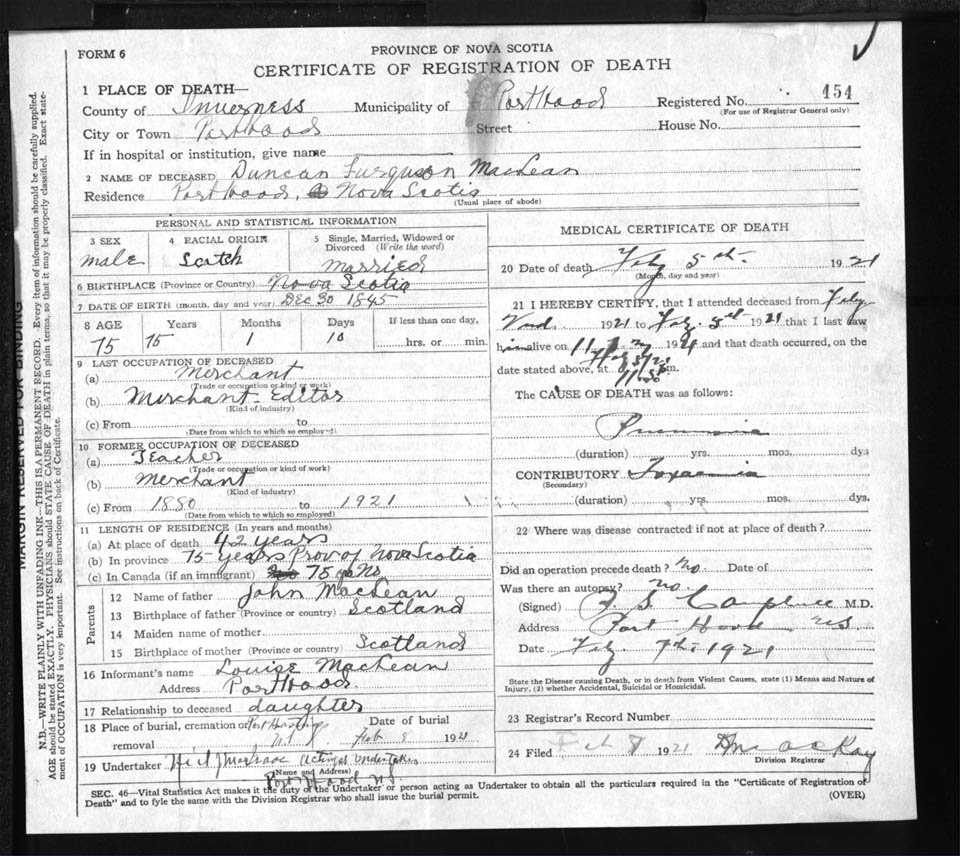 FORM 6
PROVINCE OF NOVA SCOTIA
CERTIFICATE OF REGISTRATION OF DEATH
1 PLACE OF DEATH—
County of Inverness Municipality of Port Hood Registered No. 454
(For use of Registrar General only)
City or Town Port Hood Street House No.
If in hospital or institution, give name
2 NAME OF DECEASED Duncan Furguson MacLean
Residence Port Hood, Nova Scotia
(Usual place of abode)
PERSONAL AND STATISTICAL INFORMATION
3 SEX 4 RACIAL ORIGIN 5 Single, Married, Widowed or Divorced (Write the word)
male Scotch married
6 BIRTHPLACE (Province or Country) Nova Scotia
7 DATE OF BIRTH (month, day and year) Dec 30 1845
8 AGE Years Months Days If less than one day,
75 75 1 10 hrs. or min.
9 LAST OCCUPATION OF DECEASED
(a) merchant
(Trade or occupation or kind or work)
(b) Merchant-Editor
(Kind of industry)
(c) From to
(Date from which to which so employed)
10 FORMER OCCUPATION OF DECEASED
(a) Teacher
(Trade or occupation or kind of work)
(b) merchant
(Kind of industry)
(c) From 1880 to 1921
(Date from which to which so employed)
11 LENGTH OF RESIDENCE (In years and months)
(a) At place of death 42 years
(b) In province 75 years Prov of Nova Scotia
(c) In Canada (if an immigrant) 75
Parents
12 Name of father John MacLean
13 Birthplace of father (Province or country) Scotland
14 Maiden name of mother
15 Birthplace of mother (Province or country) Scotland
16 Informant's name Louise MacLean
Address Port Hood
17 Relationship to deceased daughter
18 Place of burial, cremation or removal Port Hastings Date of burial Feb 8 1921
19 Undertaker Acting as Undertaker
(Name and Address)
Port Hood NS
MEDICAL CERTIFICATE OF DEATH
20 Date of death Feby 5th 1921
(Month, day and year)
21 I HEREBY CERTIFY, that I attended deceased from Feby
1921 to Feby 5th 1921 that I last saw
him alive on 1921 and that death occurred, on the
date stated above, at m.
The CAUSE OF DEATH was as follows:
Pneumonia
(duration) yrs. mos. dys
CONTRIBUTORY Toxaemia
(Secondary)
(duration) yrs. mos. dys.
22 Where was disease contracted if not at place of death?
Did an operation precede death? no Date of
Was there an autopsy? no
(Signed) M.D.
Address Port Hood NS
Date Feby 7th 1921
State the Disease causing Death, or in death from Violent Causes, state (1) Means and Nature of
Injury, (2) whether Accidental, Suicidal or Homicidal.
23 Registrar's Record Number
24 Filed Feb 8 1921
Division Registrar
SEC. 46—Vital Statistics Act makes it the duty of the Undertaker or person acting as Undertaker to obtain all the particulars required in the "Certificate of Registration of
Death" and to fyle the same with the Division Registrar who shall issue the burial permit. (OVER)
MARGIN RESERVED FOR BINDING
N.B.—WRITE PLAINLY WITH UNFADING INK—THIS IS A PERMANENT RECORD. Every item of information should be carefully supplied.
AGE should be stated EXACTLY. PHYSICIANS should STATE CAUSE OF DEATH in plain terms, so that it may be properly classified. Exact state-
ment of OCCUPATION is very important. See instructions on back of Certificate.